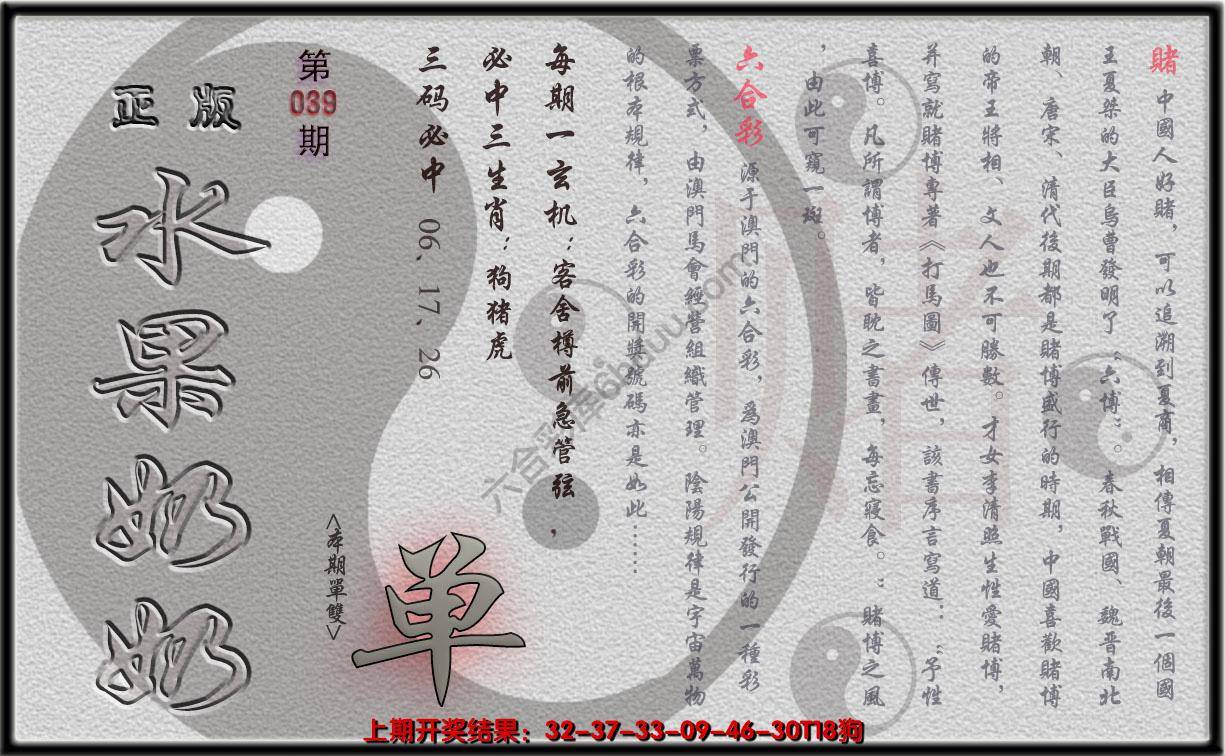 賭 中國人好賭，可以追溯到夏商，相傳夏朝最後一個國
王夏桀的大臣烏曹發明了“六博”。春秋戰國、魏晋南北
朝、唐宋、清代後期都是賭博盛行的時期，中國喜歡賭博
的帝王將相、文人也不可勝數。才女李清照生性愛賭博，
并寫就賭博專著《打馬圖》傳世，該書序言寫道：“予性
喜博。凡所謂博者，皆眈之書畫，每忘寢食。”賭博之風
，由此可窺一斑。
六合彩 源于澳門的六合彩，爲澳門公開發行的一種彩
票方式，由澳門馬會經營組織管理。陰陽規律是宇宙萬物
的根本規律，六合彩的開獎號碼亦是如此……
每期一玄机：客舍樽前急管弦，
必中三生肖：狗猪虎
三码必中 06、17、26
<本期單雙>
单
第
039
期
正版
水果奶奶
六合彩库6hduu.com
上期开奖结果：32-37-33-09-46-30T18狗